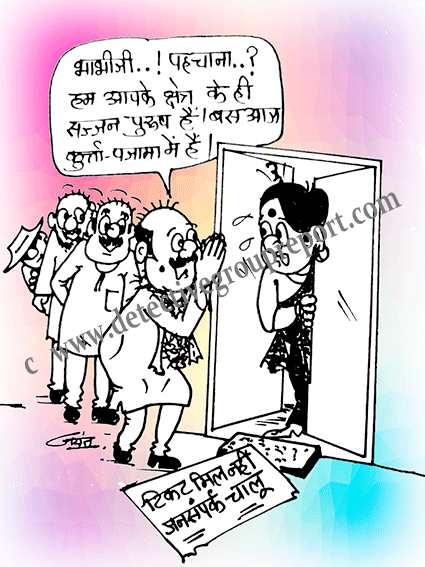 भाभीजी..! पहचाना..?
हम आपके क्षेत्र के ही
सज्जन पुरुष हैं। बस आज
कुर्त्ता-पजामा में हैं!
c www.detectivegroupreport.com
टिकट मिल नहीं
जनसंपर्क चालू